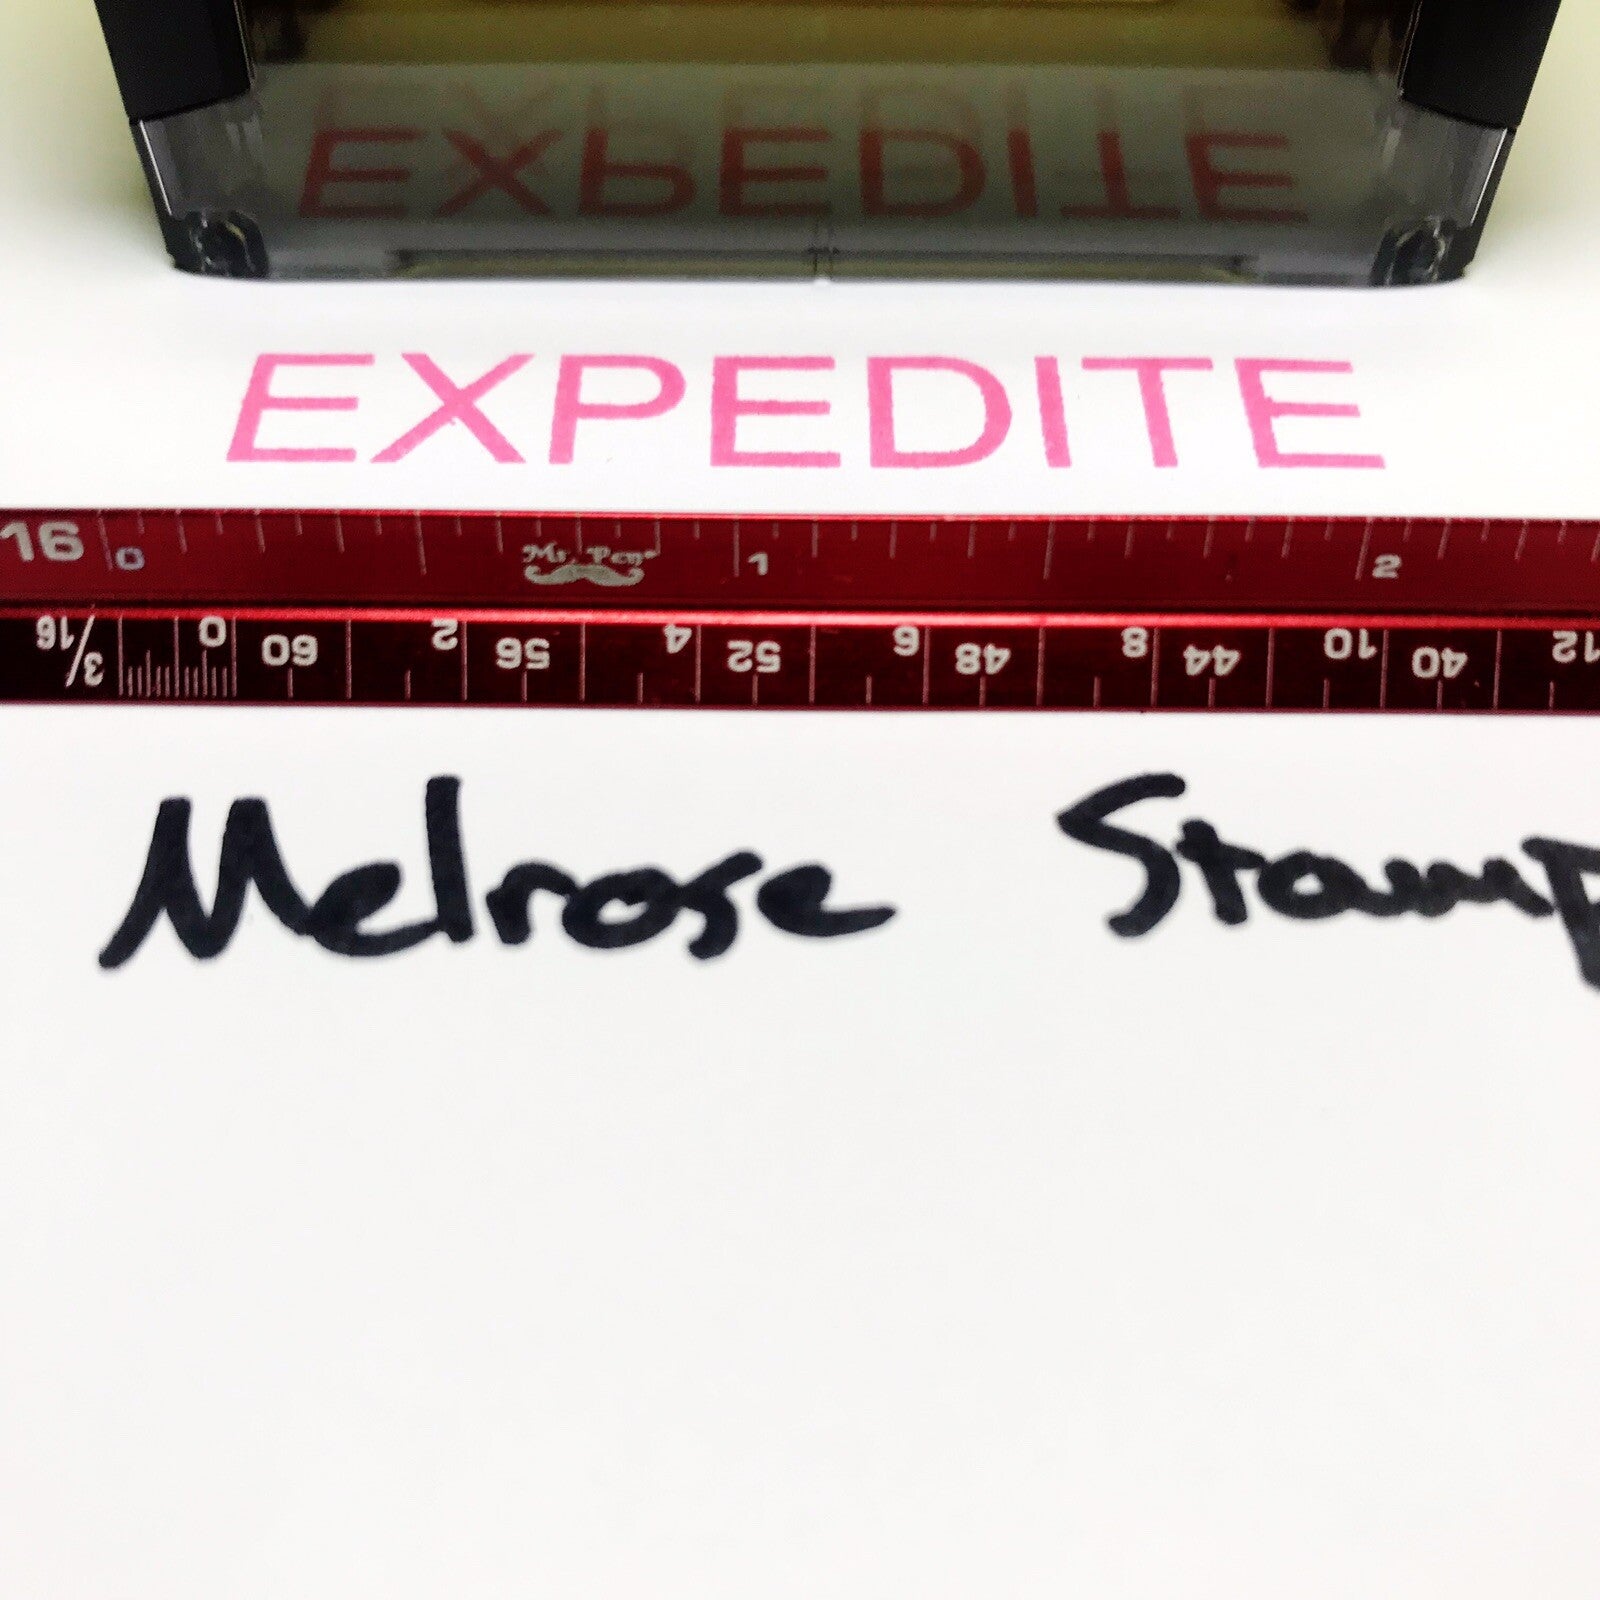 EXPEDITE
EXPEDITE
16 0 1 2
Mr. Pen
3/16 0 60 2 56 4 52 6 48 8 44 10 40 12
Melrose Stamp